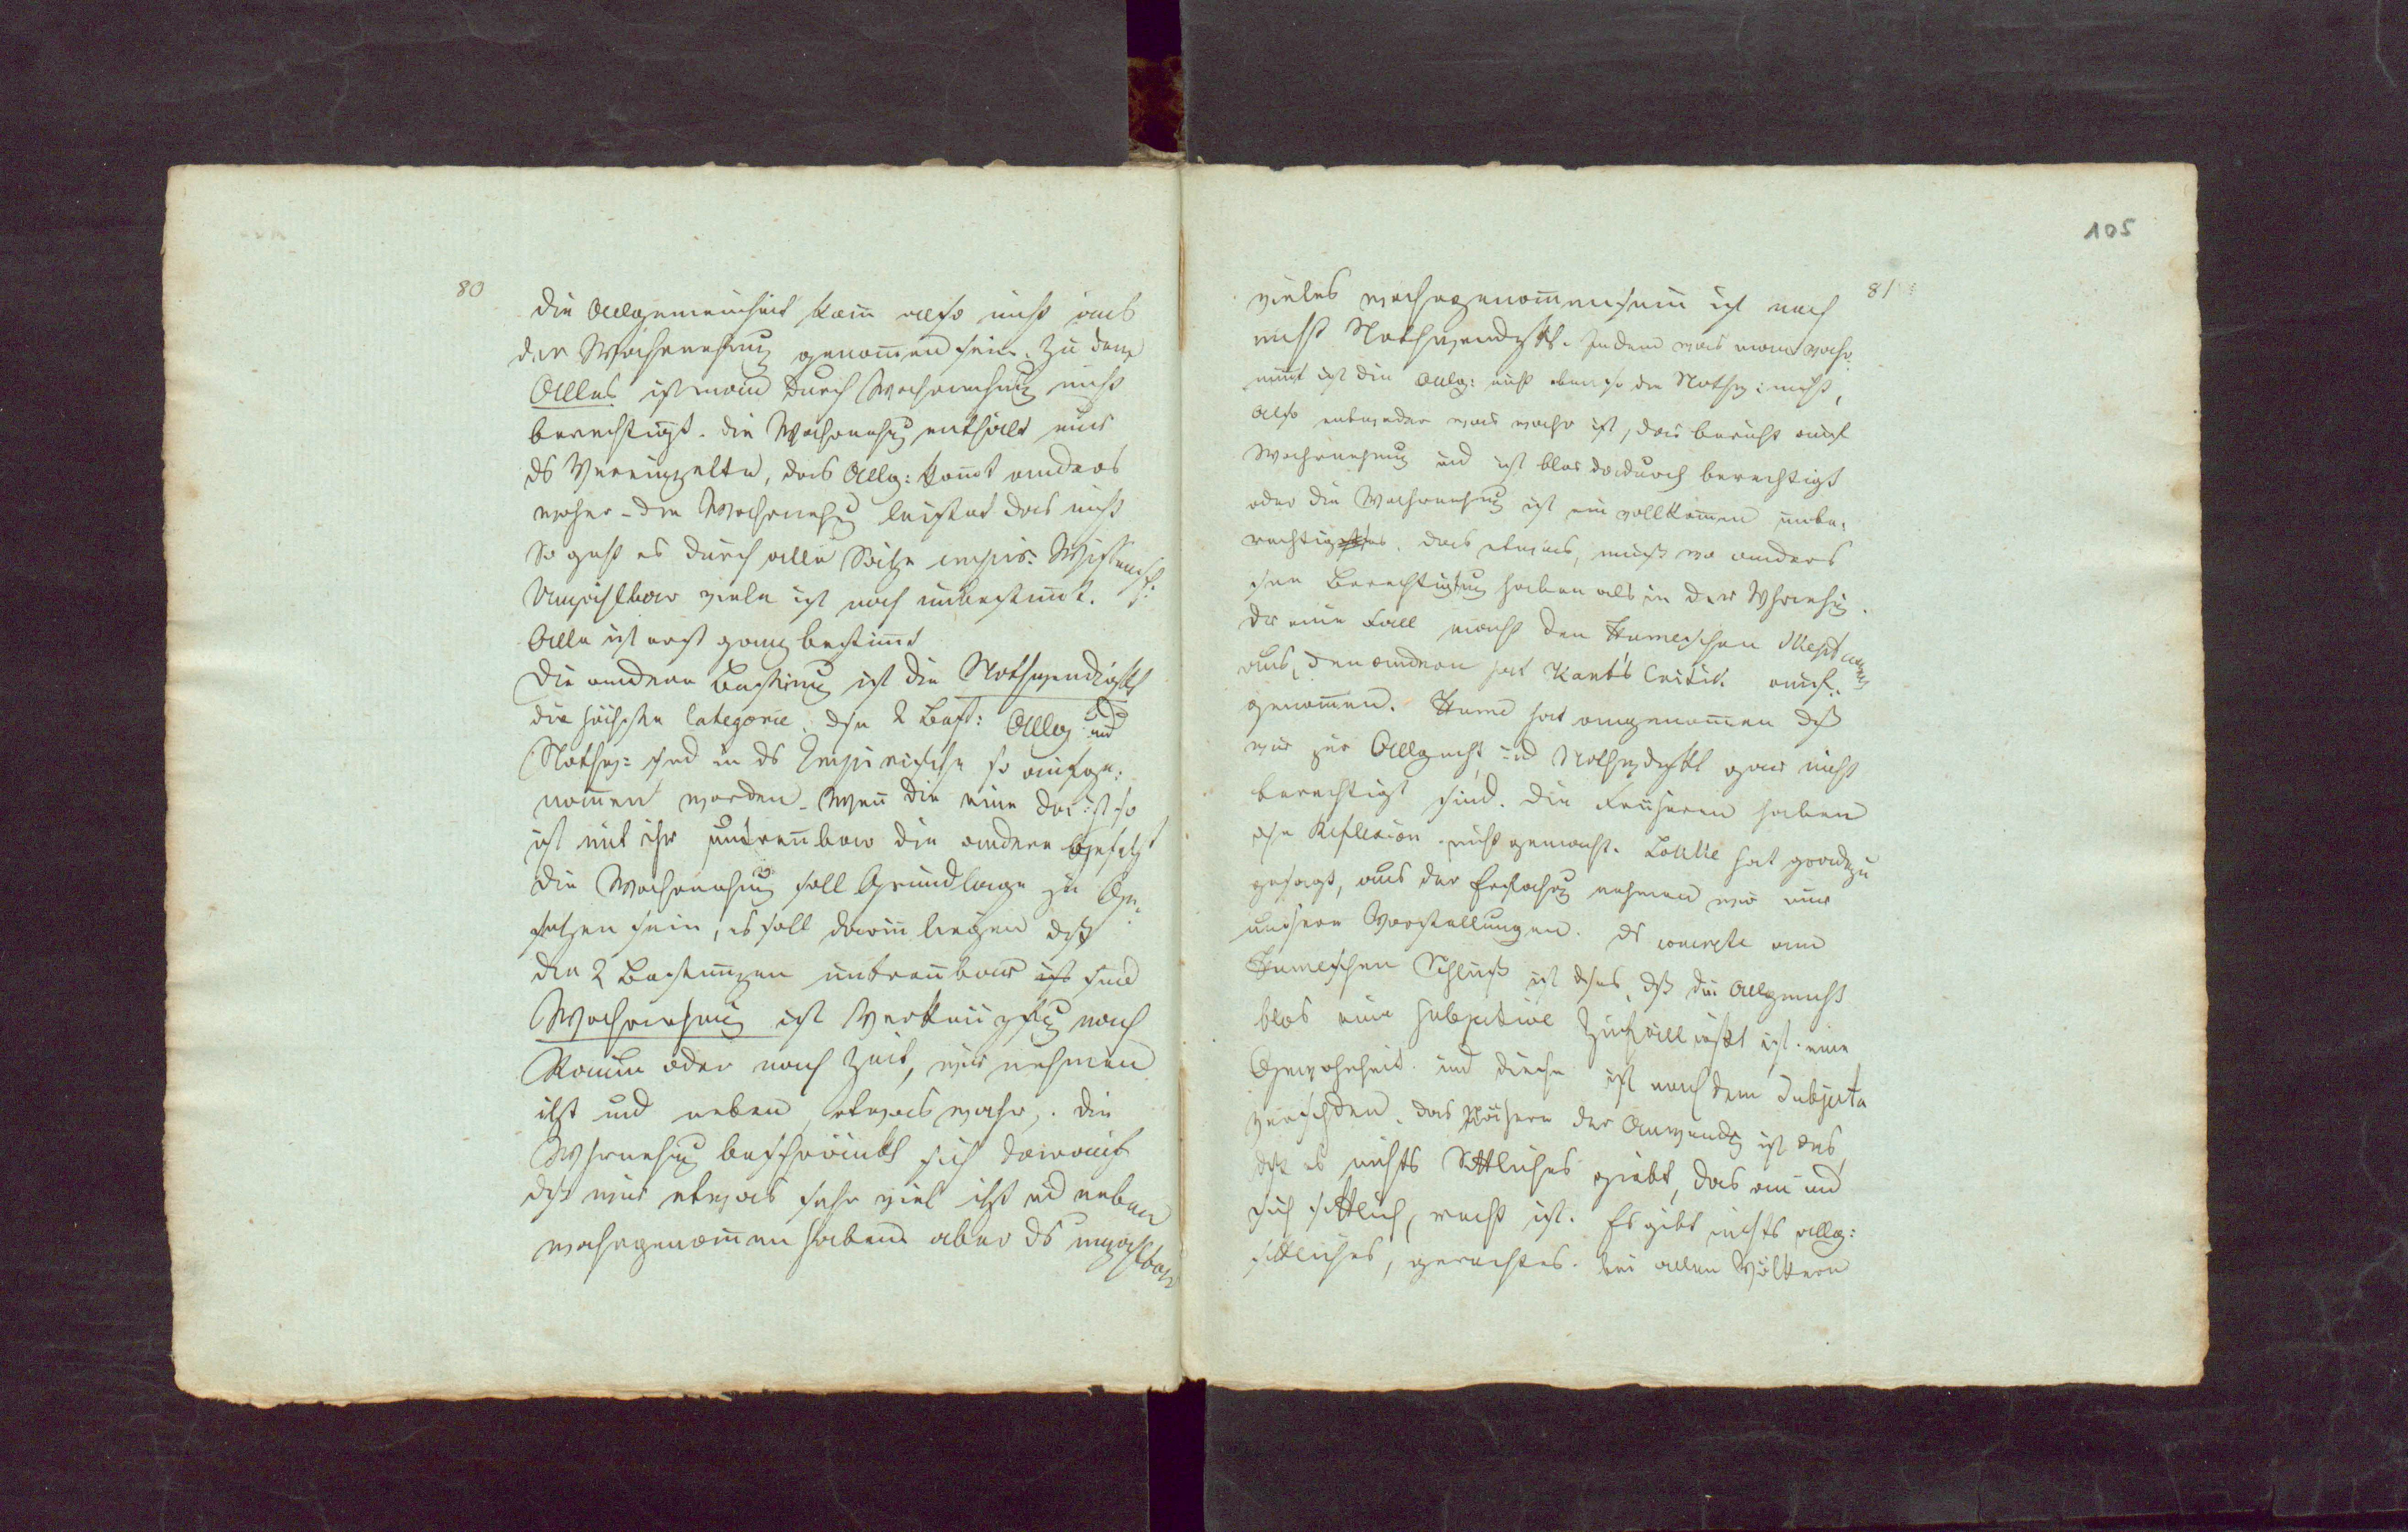 80
die Allgemeinheit kann also nicht aus
der Wahrnehmung genommen sein. Zu dem
Alles ist man durch Wahrnehmung nicht
berechtigt. die Wahrnehmg enthält nur
ds Vereinzelte, das Allg: kommt anders
woher - die Wahrnehmg leistet das nicht
So geht es durch alle Sätze empir: Wissensch:
Unzählbar viele ist noch unbestimmt.
Alle ist erst ganz bestimmt
Die andere Bestimung ist die Nothwendigkt
die höchste Categorie. dse 2 Best: Allg und
Nothw: sind in ds Empirische so aufge:
nommen worden - Wenn die eine da ist so
ist mit ihr untrennbar die andere gesetzt
die Wahrnehmung soll Grundlage zu Ge:
setzen sein, es soll darin liegen dß
die 2 Bestimmgen untrennbar ist sind
Wahrnehmung ist Verknüpfg nach
Raum oder nach Zeit, wir nehmen
itzt und neben etwas wahr. die
Whrnehmg beschränkt sich darauf
dß wir etwas sehr viel itzt ud neben
wahrgenommen haben aber ds unzählbar
105
81
vieles wahrgenommensein ist noch
nicht Nothwendgkt. Indem was man wahr
nimt ist die Allg: nicht ebenso die Nothw: nicht,
Also entweder was wahr ist, das beruht auf
Wahrnehmung und ist blos dadurch berechtigt
oder die Wahrnehmg ist ein vollkommen unbe:
rechtigtes. das etwas, muß wo anders
seine Berechtigung haben als in der Whrnehmg.
Der eine Fall macht den Humeschen Skepticismus
aus, den andern hat Kant's Critik auf:
genommen. Hume hat angenommen dß
wir zur Allgmht und Nothwdgkt gar nicht
berechtigt sind. die Früheren haben
dse Reflexion nicht gemacht. Locke hat gradezu
gesagt, aus der Erfahrg nehmen wir nur
unsere Vorstellungen. ds concrete am
Humeschen Schluß ist dses, dß die Allgmht
blos eine subjective Zufälligkt ist. eine
Gewohnheit und diese ist nach dem Subjecte
verschden. das Nähere der Anwendg ist das
dß es nichts Sittliches giebt, das an und
sich sittlich, recht ist. Es gibt nichts allg:
sittliches, gerechtes. bei allen Völkern